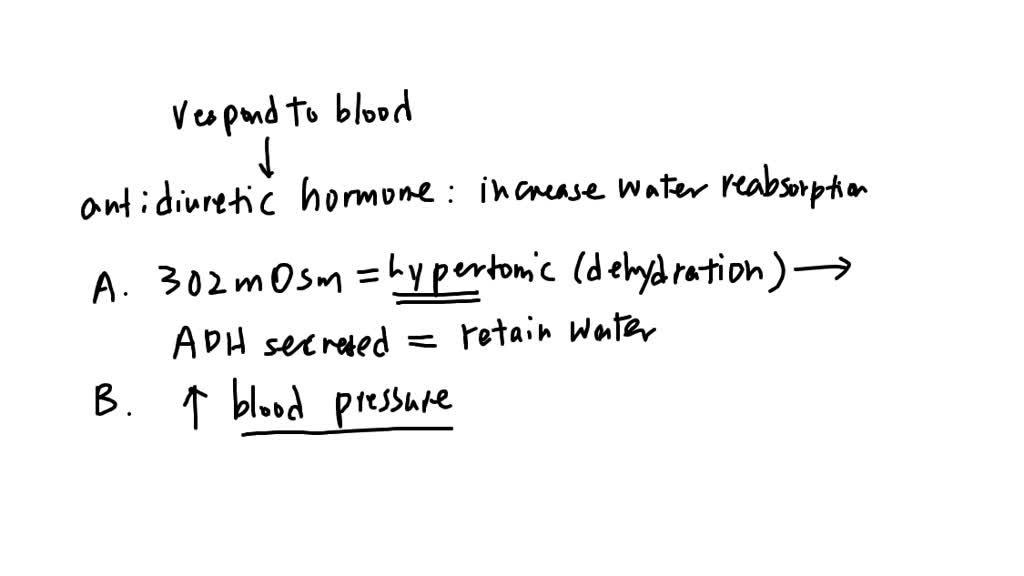 respond to blood
↓
antidiuretic hormone: increase water reabsorption
A. 302 mOsm = hypertonic (dehydration) →
ADH secreted = retain water
B. ↑ blood pressure